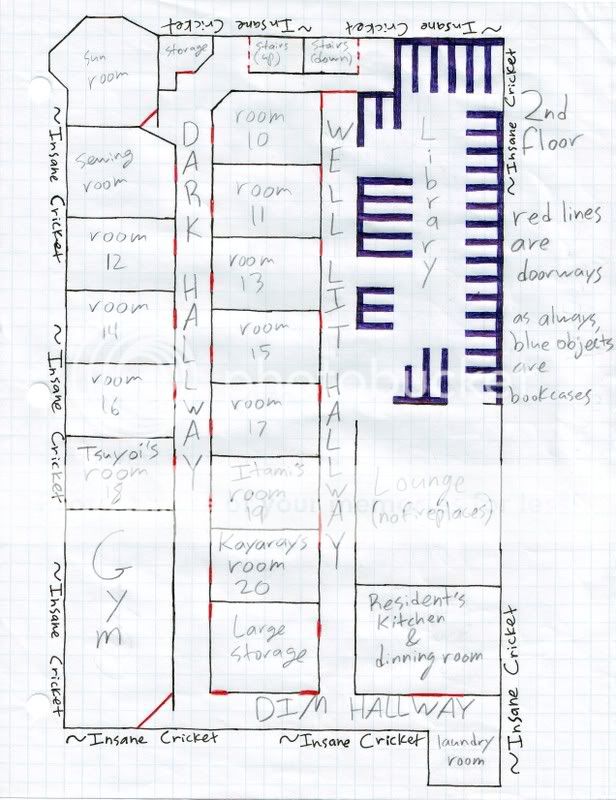 ~Insane Cricket
~Insane Cricket
~Insane Cricket
sun
room
storage
stairs
(up)
stairs
(down)
~Insane Cricket
2nd
floor
room
10
DARK HALLWAY
WELL LIT HALLWAY
Library
sewing
room
~Insane Cricket
room
11
red lines
are
doorways
room
12
room
13
as always,
blue objects
are
bookcases
room
14
room
15
~Insane Cricket
room
16
room
17
Tsuyoi's
room
18
Itami's
room
19
Lounge
(no fireplaces)
Gym
Kayaray's
room
20
~Insane Cricket
Resident's
Kitchen
&
dinning room
Large
storage
~Insane Cricket
DIM HALLWAY
~Insane Cricket
~Insane Cricket
laundry
room